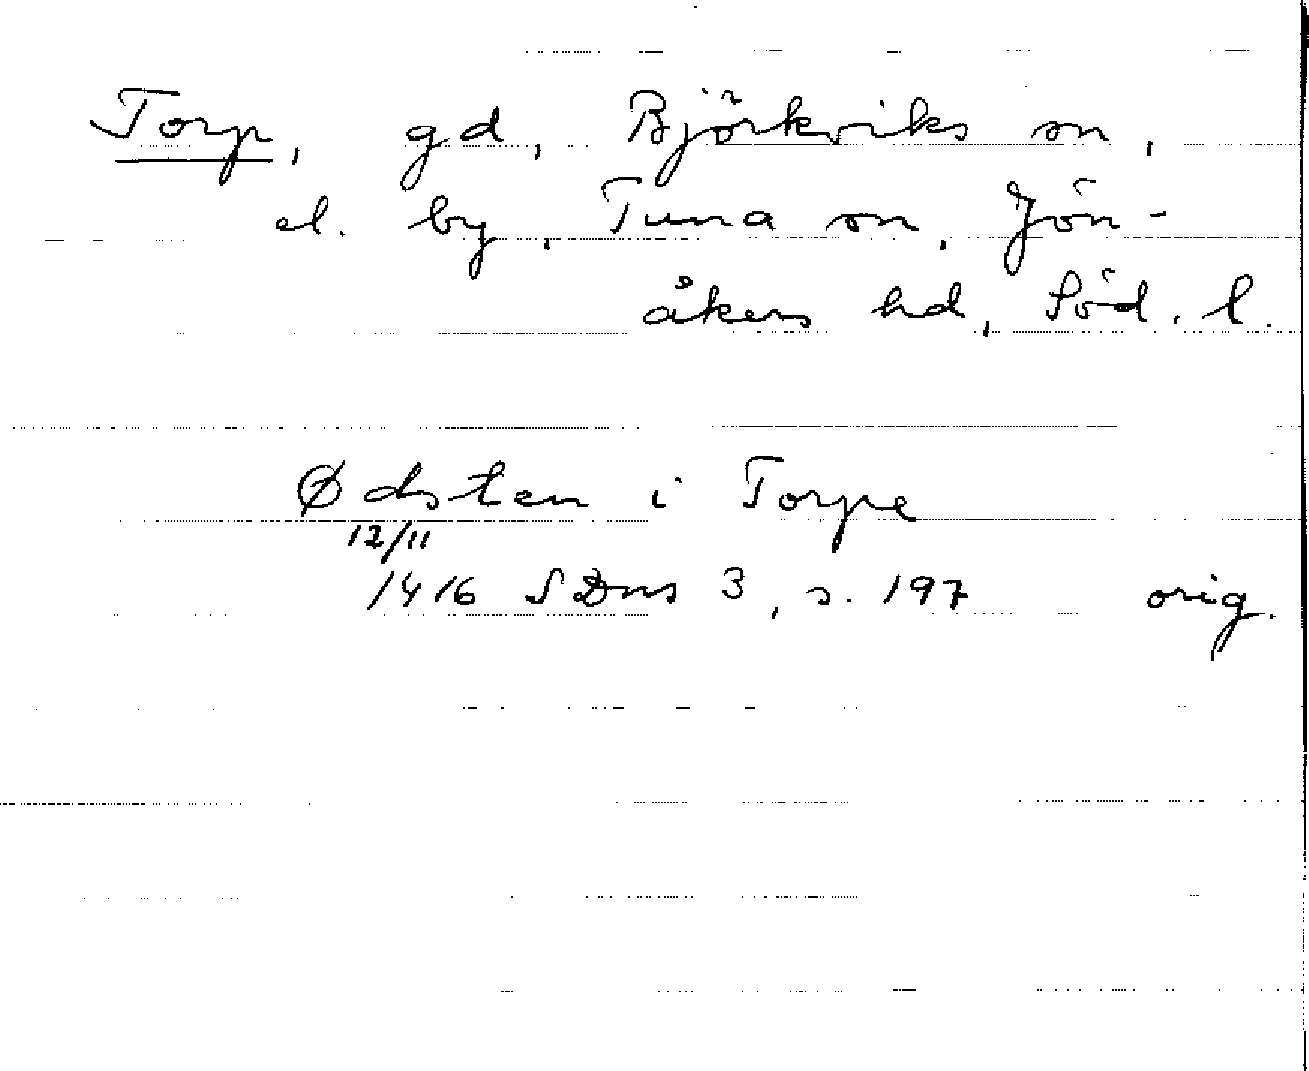 Torp, gd, Björkviks sn,
el. by, Tuna sn, Jön-
åkers hd, Söd. l.
Ødsten i Torpe
12/11
1416 SDns 3, s. 197 orig.